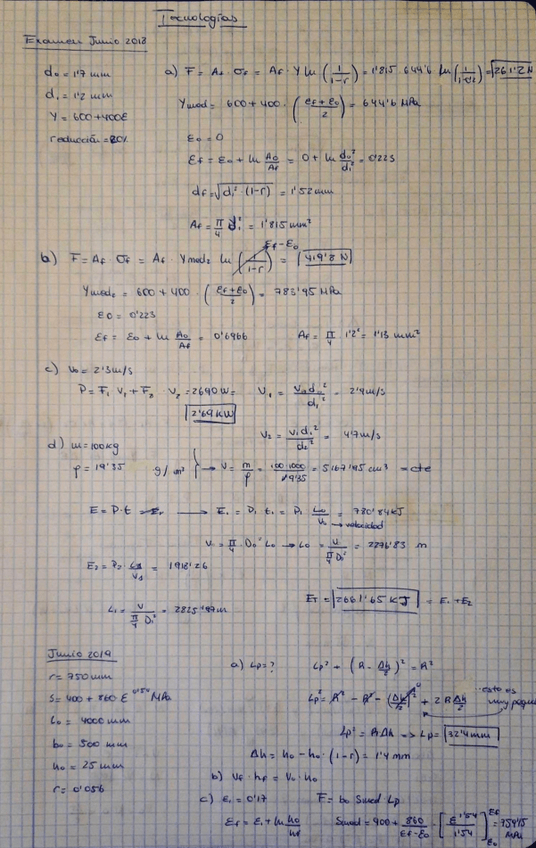 Tecnologías
Examen Junio 2018
d₀ = 1'7 mm
d₁ = 1'2 mm
Y = 600+400ε
reducción = 20%
a) F = Af · σf = Af · Y ln (1/(1-r)) = 1'815 · 644'6 ln (1/(1-0'2)) = 261'2 N
Ymod = 600 + 400 · ((εf+ε₀)/2) = 644'6 MPa
ε₀ = 0
εf = ε₀ + ln A₀/Af = 0 + ln d₀²/d₁² = 0'223
df = √(d₀² · (1-r)) = 1'52 mm
Af = π/4 d₁² = 1'815 mm²
b) F = Af σf = Af · Ymod₂ ln (1/(1-r)) εf-ε₀ = 419'8 N
Ymod₂ = 600 + 400 · ((εf+ε₀)/2) = 783'95 MPa
ε0 = 0'223
εf = ε₀ + ln A₀/Af = 0'6966
Af = π/4 1'2² = 1'13 mm²
c) V₀ = 2'3 m/s
P = F₁ V₁ + F₂ · V₂ = 2690 W =
2'69 KW
V₁ = V₀d₀²/d₁² = 2'9 m/s
V₂ = V₁d₁²/d₂² = 4'7 m/s
d) m = 100 kg
ρ = 19'35 g/cm³ → V = m/ρ = 100·1000/19'35 = 5167'95 cm³ = cte
E = P·t → E₁ = P₁ t₁ = P₁ L₀/V₀ = 780'84 KJ
→ velocidad
V = π/4 · D₀² L₀ → L₀ = V/(π/4 D₀²) = 2276'83 m
E₂ = P₂ · L₁/V₁ = 1918'26
ET = 2661'65 KJ = E₁ + E₂
L₁ = V/(π/4 D₁²) = 2825'97 m
Junio 2019
r = 750 mm
S = 400 + 860 ε^0'54 MPa
L₀ = 4000 mm
b₀ = 500 mm
h₀ = 25 mm
r = 0'056
a) Lp = ?
Lp² + (R - Δh/2)² = R²
Lp² = R² - R² - (Δh/2)² + 2R Δh/2
esto es
muy
Lp² = RΔh => Lp = 32'4 mm
Δh = h₀ - h₀ · (1-r) = 1'4 mm
b) Vf · hf = V₀ · h₀
c) ε₁ = 0'17
F = b₀ Smed Lp
εf = ε₁ + ln h₀/hf
Smed = 400 + 860/(εf-ε₀) [ε^1'54/1'54]
MPa